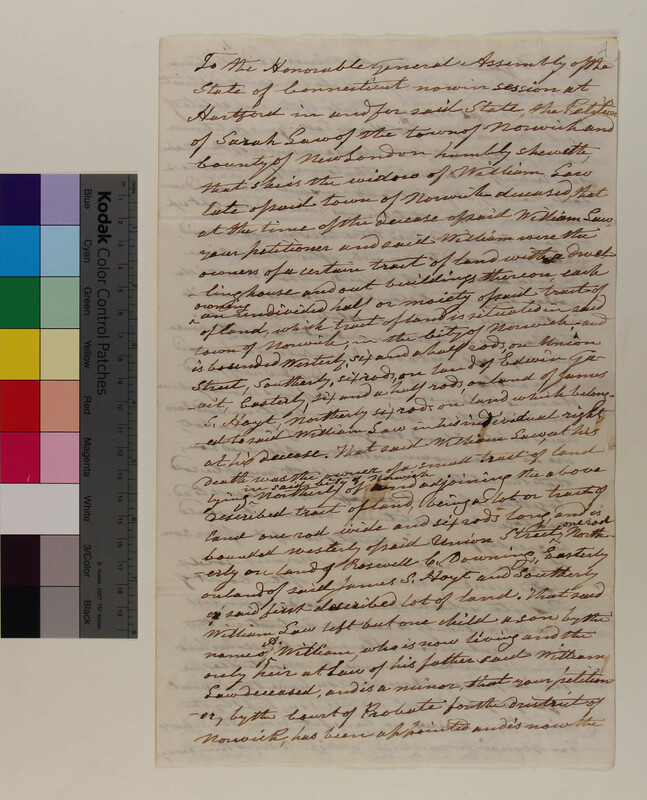 4
To the Honorable General Assembly of the
State of Connecticut now in session at
Hartford in and for said State, the Petition
of Sarah Law of the town of Norwich and
County of New London humbly sheweth,
that she is the widow of William Law
late of said town of Norwich deceased, that
at the time of the decease of said William Law,
your petitioner and said William were the
owners of a certain tract of land with a dwel
ling house and out buildings thereon, each
owning
an undivided half or moiety of said tract of
of land, which tract of land is situated in said
town of Norwich, in the City of Norwich and
is bounded Westerly, six and a half rods, on Union
Street, Southerly, six rods, on land of Edwin
Easterly, six and a half rods on land of James
S. Hoyt, Northerly six rods on land which belong-
ed to said William Law in his individual right
at his decease. That said William Law at his
death was the owner of a small tract of land
in said city of Norwich
lying Northerly of and adjoining the above
described tract of land, being a lot or tract of
land one rod wide and six rods long and is
one rod
bounded westerly of said Union Street, North-
erly on land of Roswell C. Downing, Easterly
on land of said James S. Hoyt and Southerly
on said first described lot of land. That said
William Law left but one child a son by the
name of William, who is now living and the
only heir at Law of his father said William
Law deceased, and is a minor, that your petition
-er, by the Court of Probate for the district of
Norwich, has been appointed and is now the
Kodak Color Control Patches
© Kodak, 2007
Blue
Cyan
Green
Yellow
Red
Magenta
White
3/Color
Black